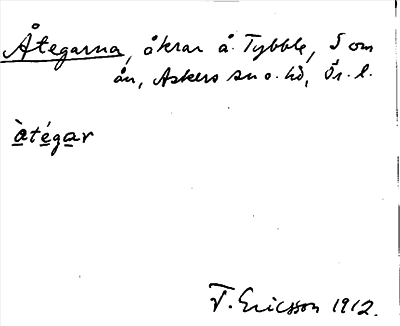 Åtegarna, åkrar å. Tybble, S om
ån, Askers sn o. hd, Ör. l.
àtégar
T. Ericsson 1912.